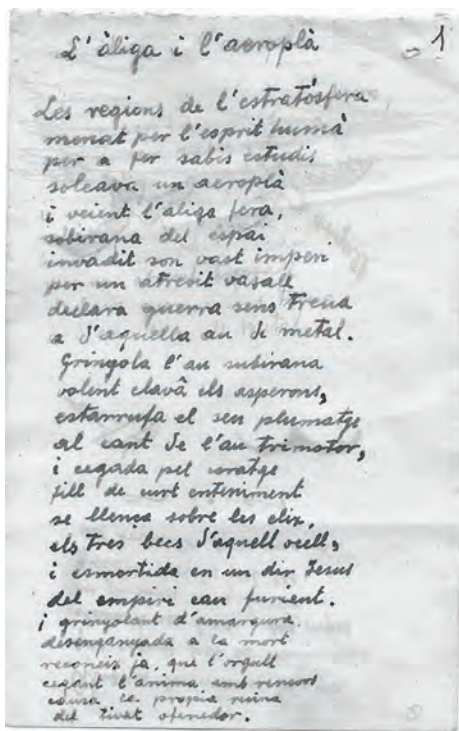 L'àliga i l'aeroplà
- 1
Les regions de l'estratòsfera
menat per l'esprit humà
per a fer sabis estudis
solcava un aeroplà
i veient l'àliga fera,
sobirana del espai
invadit son vast imperi
per un atrevit vasall
declara guerra sens treua
a d'aquella au de metal.
Grinyola l'au subirana
volent clavâ els asperons,
estarrufa el seu plumatge
al cant de l'au trimotor,
i cegada pel coratge
fill de curt enteniment
se llença sobre les elix,
els tres becs d'aquell ocell,
i esmortida en un dir Jesus
del empiri cau furient.
i grinyolant d'amargura
desenganyada a la mort
reconeis ja, que l'orgull
cegant l'ànima amb rencors
causa la propia ruina
del tivat ofenedor.